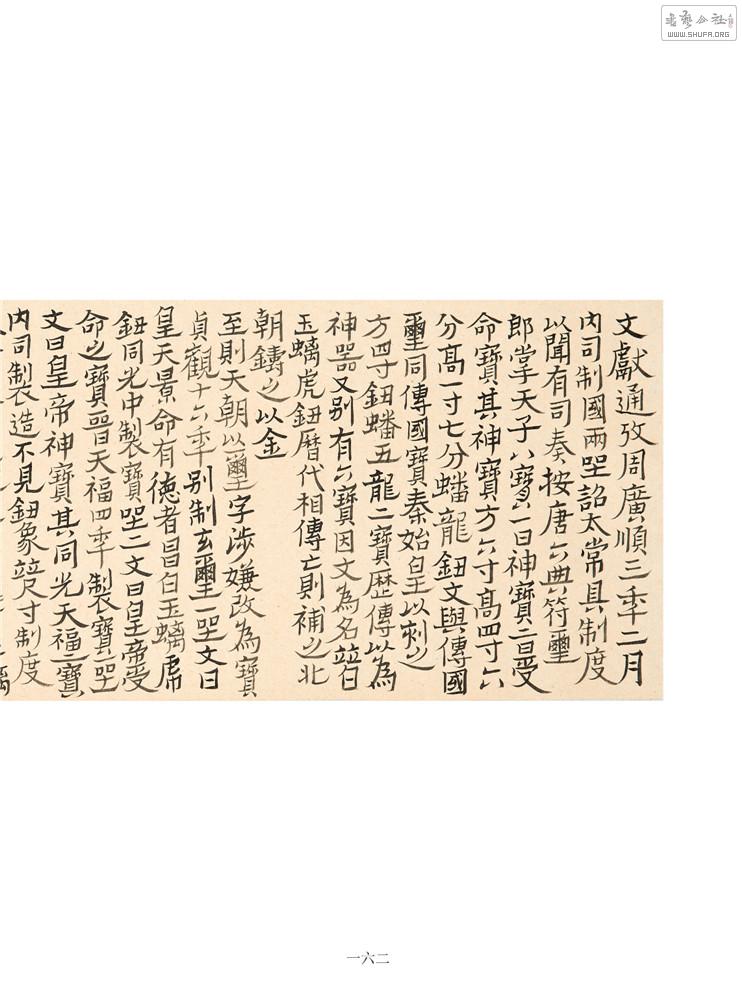 文獻通攷周廣順三秊二月
內司制國兩㘴詔太常具制度
以聞有司奏按唐六典符璽
郎掌天子八寶一曰神寶二曰受
命寶其神寶方六寸高四寸六
分高一寸七分蟠龍鈕文與傳國
璽同傳國寶秦始皇以刻之
方四寸鈕蟠五龍二寶歷傳以為
神器又別有六寶因文為名並白
玉螭虎鈕曆代相傳亡則補之北
朝鑄之以金
至則天朝以璽字涉嫌改為寶
貞觀十六秊別制玄璽一㘴文曰
皇天景命有德者昌白玉螭虎
鈕同光中製寶㘴二文曰皇帝受
命之寶晉天福四秊製寶㘴
文曰皇帝神寶其同光天福二寶
內司製造不見鈕象並尺寸制度
一六二
WWW.SHUFA.ORG